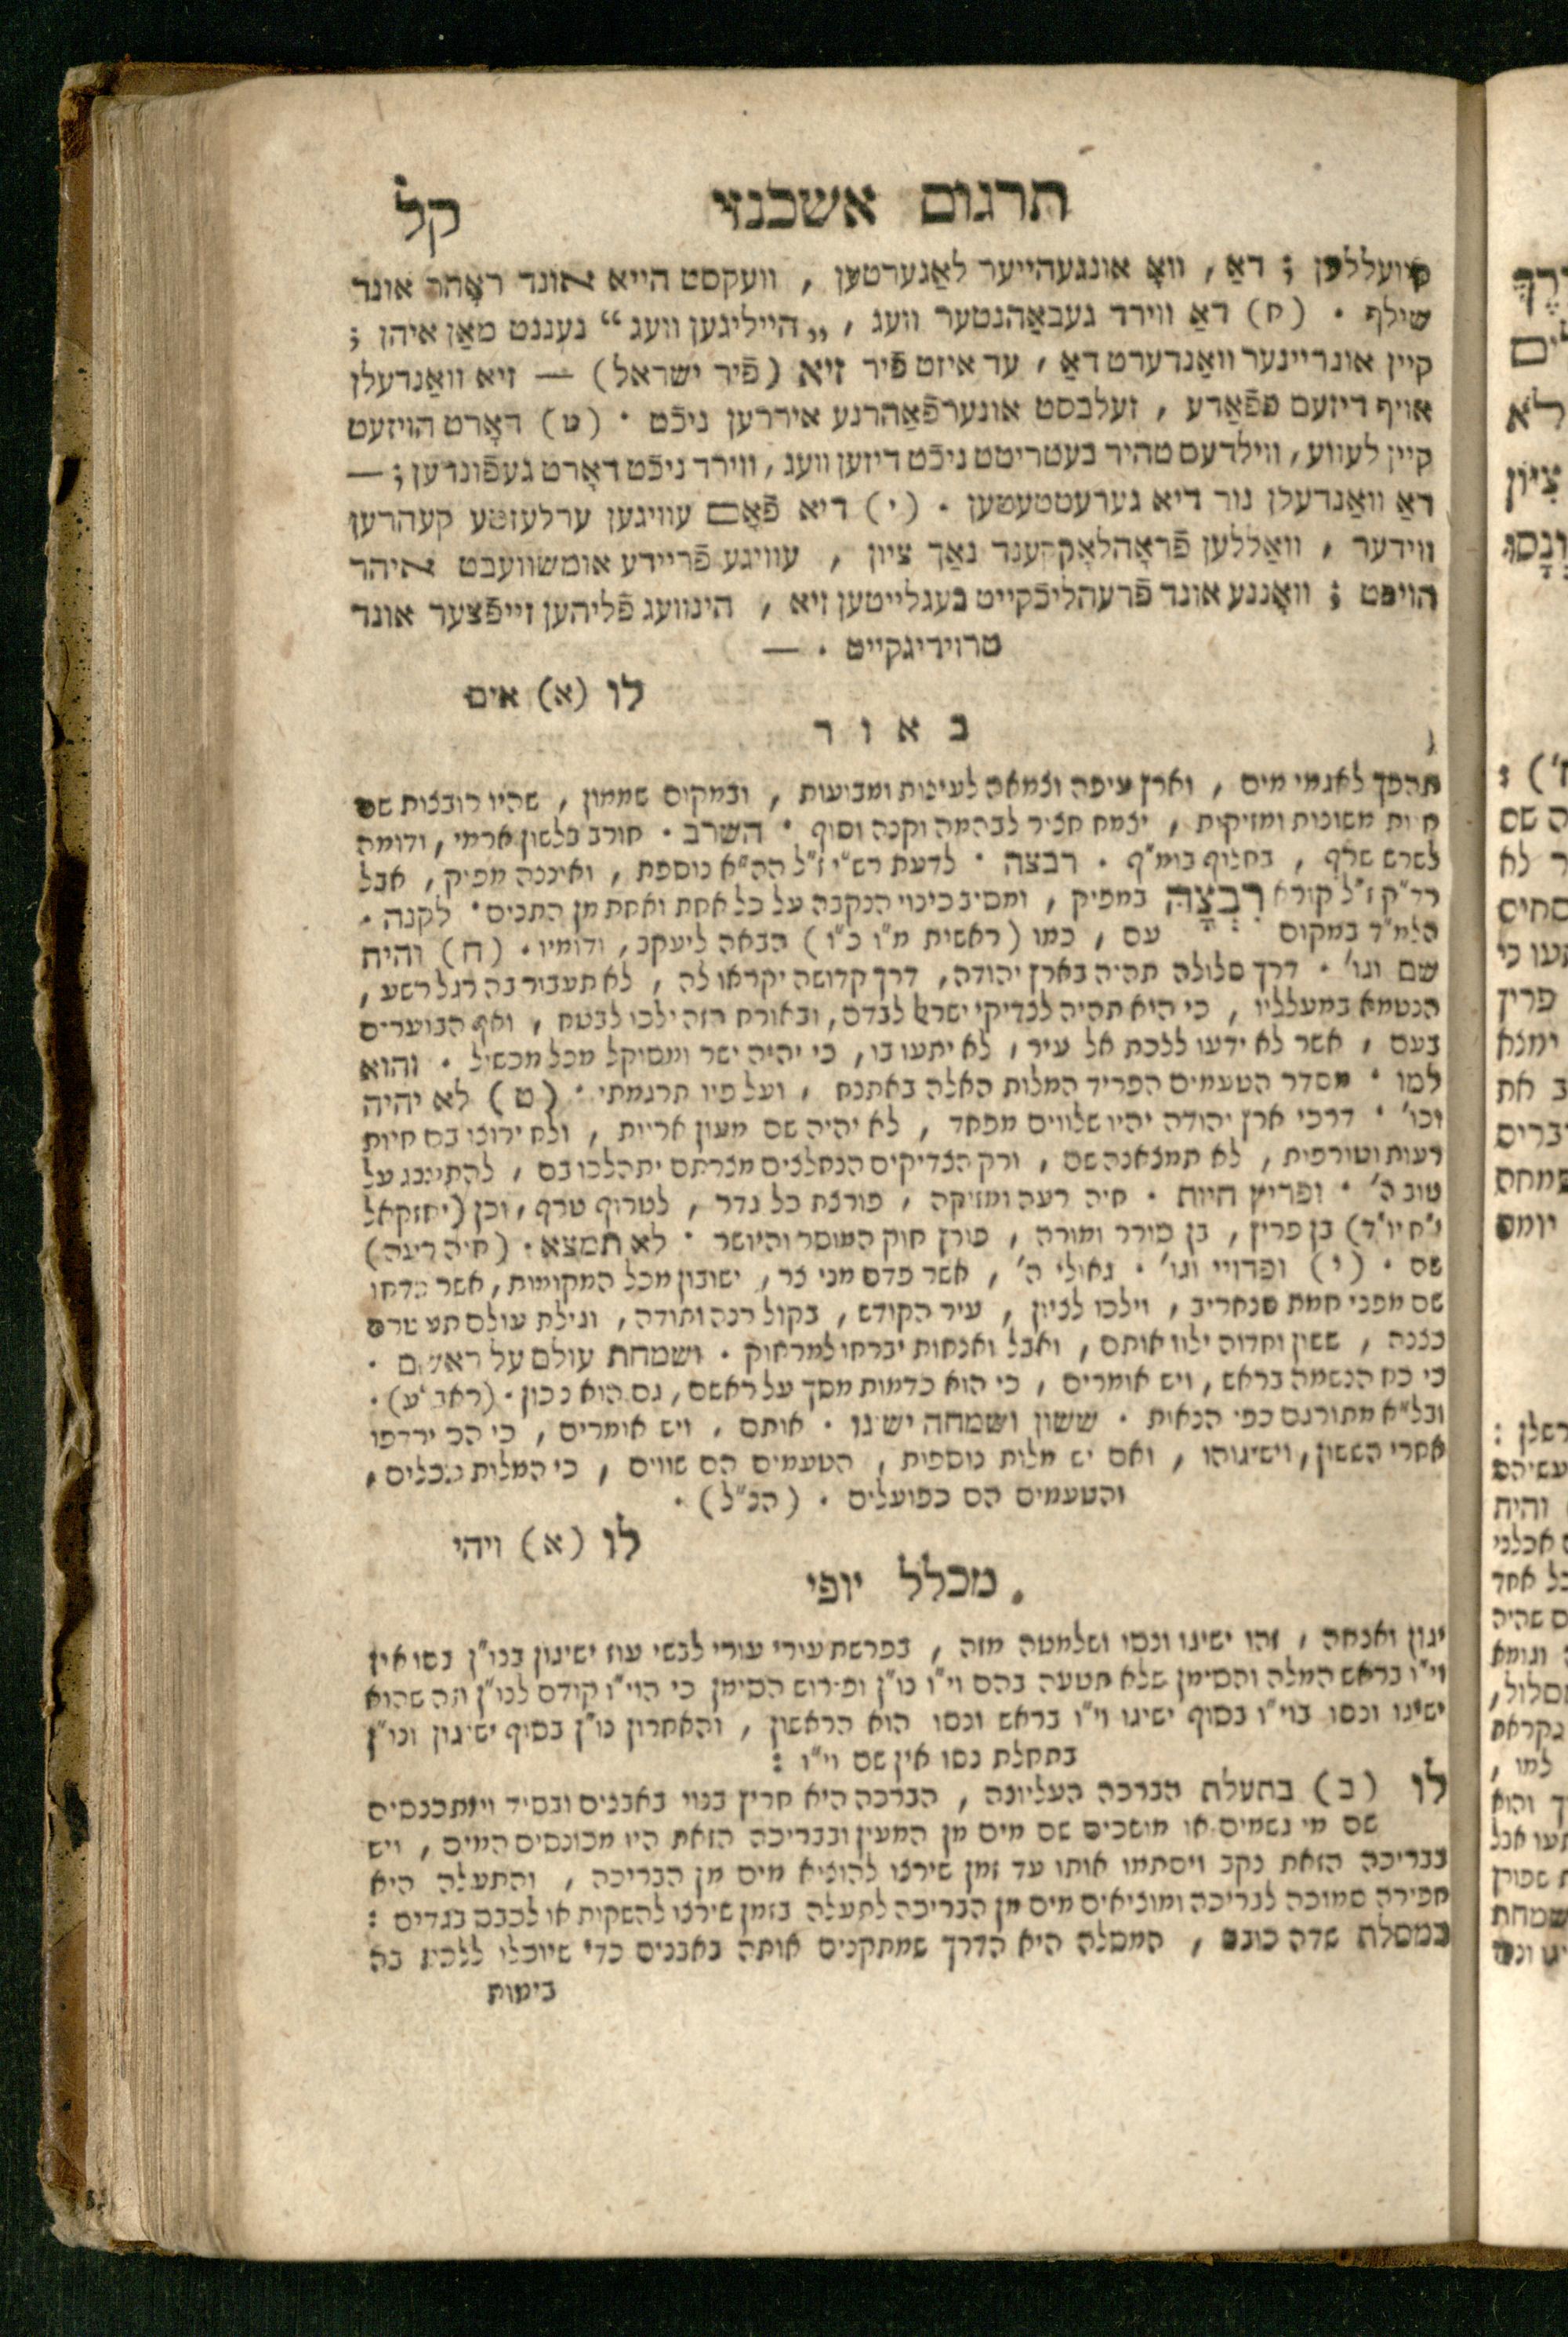 תרגום אשכנזי
קל
קוועללען ; דאַ , וואָ אונגעהייער לאַגערטען , וועקסט הייא אונד ראָהר אונד
שילף . (ח) דאַ ווירד געבאַהנטער וועג , „הייליגען וועג“ נעננט מאַן איהן ;
קיין אונריינער וואַנדערט דאַ , ער איזט פֿיר זיא (פֿיר ישראל) — זיא וואַנדעלן
אויף דיזעם פפֿאַדע , זעלבסט אונערפֿאַהרנע איררען ניכֿט . (ט) דאָרט הויזעט
קיין לעווע , ווילדעס טהיר בעטריטט ניכֿט דיזען וועג , ווירד ניכֿט דאָרט געפֿונדען ; —
דאַ וואַנדעלן נור דיא גערעטטעטען . (י) דיא פֿאָם עוויגען ערלעזטע קעהרען
ווידער , וואַללען פֿראָהלאָקקענד נאַך ציון , עוויגע פֿריידע אומשוועבט איהר
הויפט ; וואָננע אונד פֿרעהליכֿקייט בעגלייטען זיא , הינוועג פֿליהען זייפֿצער אונד
טרויריגקייט . —
לו (א) אים
באור
תהפך לאגמי מים , וארץ עיפה וצמאה לעינות ומביעות , ובמקום שממון , שהיו רובצות שם
חיות משונות ומזיקות , יצמח חציר לבהמה וקנה וסוף . השרב . חורב בלשון ארמי , ודומה
לשרש שרף , בחלוף בומ"ף . רבצה . לדעת רש"י ז"ל הה"א נוספת , ואיננה מפיק , אבל
רד"ק ז"ל קורא רִבְצָהּ במפיק , ומסיב כינוי הנקבה על כל אחת ואחת מן התנים . לקנה .
הלמ"ד במקום עם , כמו (ראשית מ"ו כ"ו) הבאה ליעקב , ודומיו . (ח) והיה
שם וגו' . דרך סלולה תהיה בארץ יהודה , דרך קדושה יקראו לה , לא תעבור בה רגל רשע ,
הנטמא במעלליו , כי היא תהיה לצדיקי ישראל לבדם , ובאורח הזה ילכו לבטח , ואף הבוערים
בעם , אשר לא ידעו ללכת אל עיר , לא יתעו בו , כי יהיה ישר ומסוקל מכל מכשול . והוא
למו . מסדר הטעמים הפריד המלות האלה באתנח , ועל פיו תרגמתי . (ט) לא יהיה
וכו' . דרכי ארץ יהודה יהיו שלווים מפחד , לא יהיה שם מעון אריות , ולא ירוצו בם חיות
רעות וטורפות , לא תמצאנה שם , ורק הצדיקים הנחלצים מצרתם יתהלכו בם , להתענג על
טוב ה' . ופריץ חיות . חיה רעה ומזיקה , פורצת כל גדר , לטרוף טרף , וכן (יחזקאל
י"ח יו"ד) בן פריץ , בן סורר ומורה , פורץ חוק המוסר והיושר . לא תמצא . (חיה רעה)
שם . (י) ופדויי וגו' . גאולי ה' , אשר פדם מני צר , ישובון מכל המקומות , אשר נדחו
שם מפני חמת סנחריב , וילכו לציון , עיר הקודש , בקול רנה ותודה , וגילת עולם תעטרם
כצנה , ששון וחדוה ילוו אותם , ואבל ואנחות יברחו למרחוק . ושמחת עולם על ראשם .
כי כח הנשמה בראש , ויש אומרים , כי הוא כדמות מסך על ראשם , גם הוא נכון . (ראב"ע) .
ובל"א מתורגם כפי הנאות . ששון ושמחה ישיגו . אותם , ויש אומרים , כי הם ירדפו
אחרי הששון , וישיגוהו , ואם יש מלות נוספות , הטעמים הם שווים , כי המלות ככלים ,
והטעמים הם כפועלים . (הנ"ל) .
לו (א) ויהי
מכלל יופי
יגון ואנחה , זהו ישיגו ונסו ושלמטה מזה , בפרשת עורי עורי לבשי עוז ישיגון בנו"ן נסו אין
וי"ו בראש המלה והסימן שלא תטעה בהם וי"ו נו"ן ופירוש הסימן כי הוי"ו קודם לנו"ן וזה שהוא
ישיגו ונסו בוי"ו בסוף ישיגו וי"ו בראש ונסו הוא הראשון , והאחרון נו"ן בסוף ישיגון ונו"ן
בתחלת נסו אין שם וי"ו :
לו (ב) בתעלת הברכה העליונה , הברכה היא חריץ בנוי באבנים ובסיד ויתכנסים
שם מי גשמים או מושכים שם מים מן המעין ובבריכה הזאת היו מכונסים המים , ויש
בבריכה הזאת נקב ויסתמו אותו עד זמן שירצו להוציא מים מן הבריכה , והתעלה היא
חפירה סמוכה לבריכה ומוציאים מים מן הבריכה לתעלה בזמן שירצו להשקות או לכבס בגדים :
במסלת שדה כובס , המסלה היא הדרך שמתקנים אותה באבנים כדי שיוכלו ללכת בה
בימות